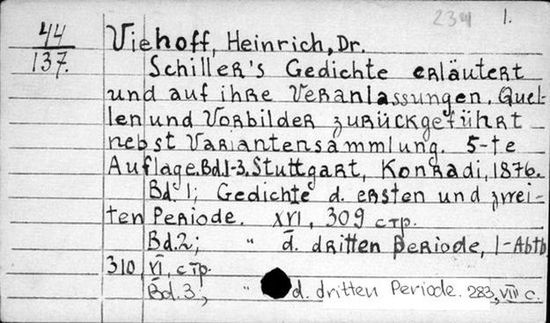 234 1.
44
137.
Viehoff, Heinrich, Dr.
Schiller's Gedichte erläutert
und auf ihre Veranlassungen, Quel-
len und Vorbilder zurückgeführt
nebst Variantensammlung. 5-te
Auflage. Bd. 1-3. Stuttgart, Konradi, 1876.
Bd. 1; Gedichte d. ersten und zwei-
ten Periode. XVI, 309 стр.
Bd. 2; " d. dritten Periode, 1-Abth
310, VI, стр.
Bd. 3., " d. dritten Periode. 283, VIII с.